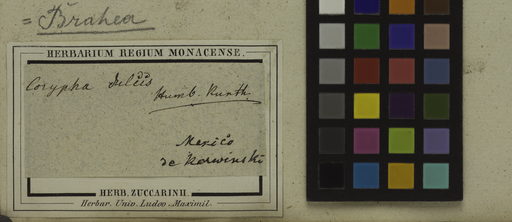 = Brahea
HERBARIUM REGIUM MONACENSE.
Corypha dulcis
Humb. Kunth.
Mexico
de Karwinski
HERB. ZUCCARINII.
Herbar. Univ. Ludov. Maximil.